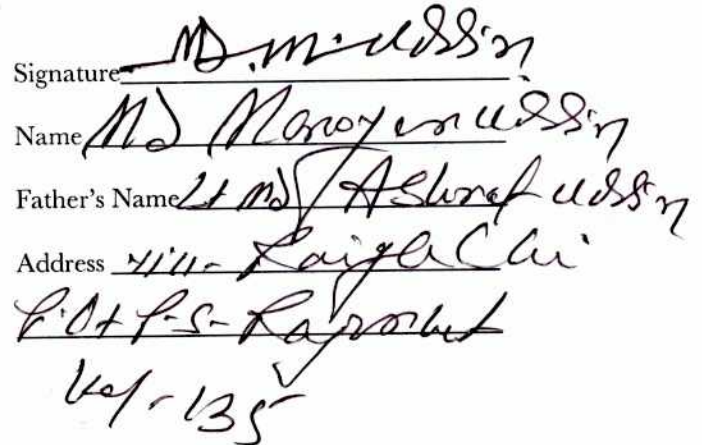 Signature Md. M. Uddin
Name Md Monoyem Uddin
Father's Name Lt Md Ashraf Uddin
Address Vill- Raigachi
P.O+P.S- Rajarhat
Kol-135